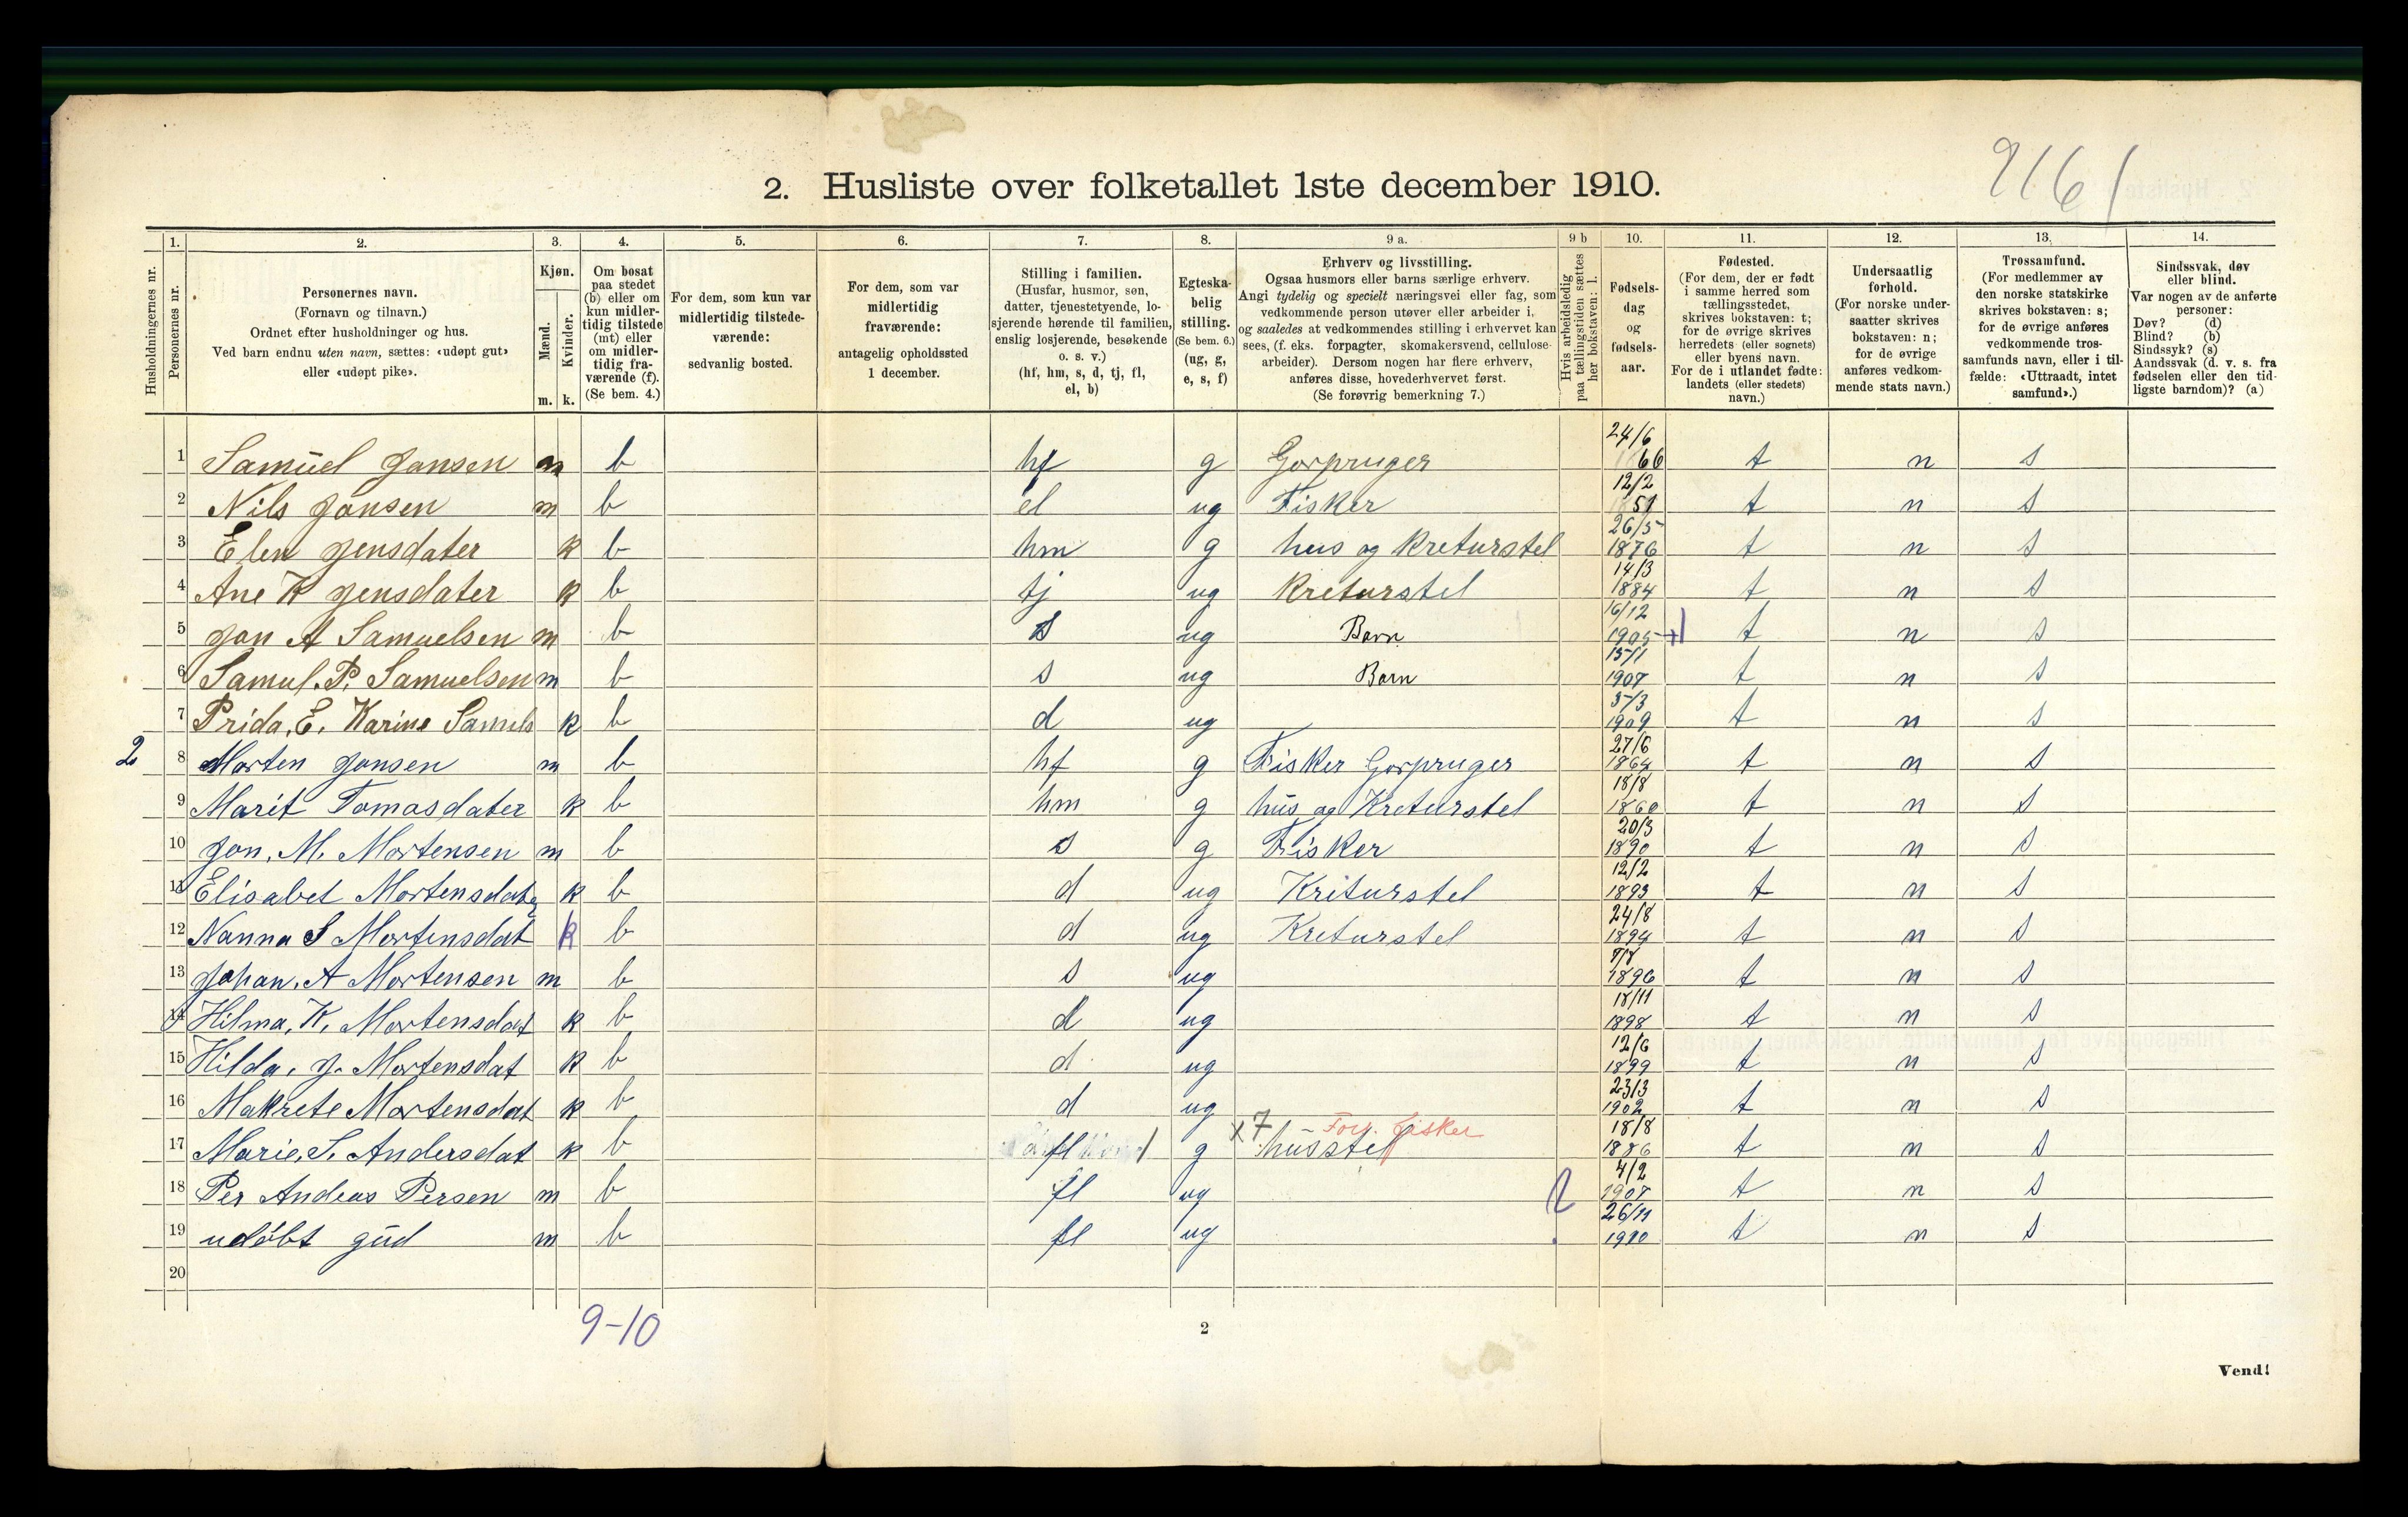 2161
2. Husliste over folketallet 1ste december 1910.
Husholdningernes nr.
1. Personernes nr.
2. Personernes navn.
(Fornavn og tilnavn.)
Ordnet efter husholdninger og hus.
Ved barn endnu uten navn, sættes: «udøpt gut»
eller «udøpt pike».
3. Kjøn.
Mænd. Kvinder.
m. k.
4. Om bosat
paa stedet
(b) eller om
kun midler-
tidig tilstede
(mt) eller
om midler-
tidig fra-
værende (f).
(Se bem. 4.)
5. For dem, som kun var
midlertidig tilstede-
værende:
sedvanlig bosted.
6. For dem, som var
midlertidig
fraværende:
antagelig opholdssted
1 december.
7. Stilling i familien.
(Husfar, husmor, søn,
datter, tjenestetyende, lo-
sjerende hørende til familien,
enslig losjerende, besøkende
o. s. v.)
(hf, hm, s, d, tj, fl,
el, b)
8. Egteska-
belig
stilling.
(Se bem. 6.)
(ug, g,
e, s, f)
9 a. Erhverv og livsstilling.
Ogsaa husmors eller barns særlige erhverv.
Angi tydelig og specielt næringsvei eller fag, som
vedkommende person utøver eller arbeider i,
og saaledes at vedkommendes stilling i erhvervet kan
sees, (f. eks. forpagter, skomakersvend, cellulose-
arbeider). Dersom nogen har flere erhverv,
anføres disse, hovederhvervet først.
(Se forøvrig bemerkning 7.)
9 b Hvis arbeidsledig
paa tællingstiden sættes
her bokstaven: l.
10. Fødsels-
dag
og
fødsels-
aar.
11. Fødested.
(For dem, der er født
i samme herred som
tællingsstedet,
skrives bokstaven: t;
for de øvrige skrives
herredets (eller sognets)
eller byens navn.
For de i utlandet fødte:
landets (eller stedets)
navn.)
12. Undersaatlig
forhold.
(For norske under-
saatter skrives
bokstaven: n;
for de øvrige
anføres vedkom-
mende stats navn.)
13. Trossamfund.
(For medlemmer av
den norske statskirke
skrives bokstaven: s;
for de øvrige anføres
vedkommende tros-
samfunds navn, eller i til-
fælde: «Uttraadt, intet
samfund».)
14. Sindssvak, døv
eller blind.
Var nogen av de anførte
personer:
Døv? (d)
Blind? (b)
Sindssyk? (s)
Aandssvak (d. v. s. fra
fødselen eller den tid-
ligste barndom)? (a)
1 Samuel Jansen m b hf g Gorpruger 24/6 1866 t n s
2 Nils Jonsen m b el ug Fisker 12/2 1851 t n s
3 Elen Jensdater k b hm g hus og Kreturstel 26/5 1876 t n s
4 Ane K Jensdater k b tj ug Kreturstel 14/3 1884 t n s
5 Jon A Samuelsen m b s ug Barn 16/12 1905 t n s
6 Samul. P. Samuelsen m b s ug Barn 15/1 1907 t n s
7 Prida. E. Karine Samuls k b d ug 5/3 1909 t n s
2 8 Morten Jonsen m b hf g Fisker Gorpruger 27/6 1864 t n s
9 Marit Tomasdater k b hm g hus og Kreturstel 18/8 1860 t n s
10 Jon. M. Mortensen m b s g Fisker 20/3 1890 t n s
11 Elisabet Mortensdat k b d ug Kriturstel 12/2 1893 t n s
12 Nanna S Mortensdat k b d ug Kreturstel 24/8 1894 t n s
13 Johan. A Mortensen m b s ug 1896 t n s
14 Hilma. K. Mortensdat k b d ug 18/11 1898 t n s
15 Hilda. J. Mortensdat k b d ug 12/6 1899 t n s
16 Makrete Mortensdat k b d ug 23/3 1902 t n s
17 Marie. S. Andersdat k b fl g x7 husstel Fors. fisker 18/8 1886 t n s
18 Per Andeas Persen m b fl ug 4/2 1907 t n s
19 udøbt gud m b fl ug 26/11 1910 t n s
20
9-10
2
Vend!